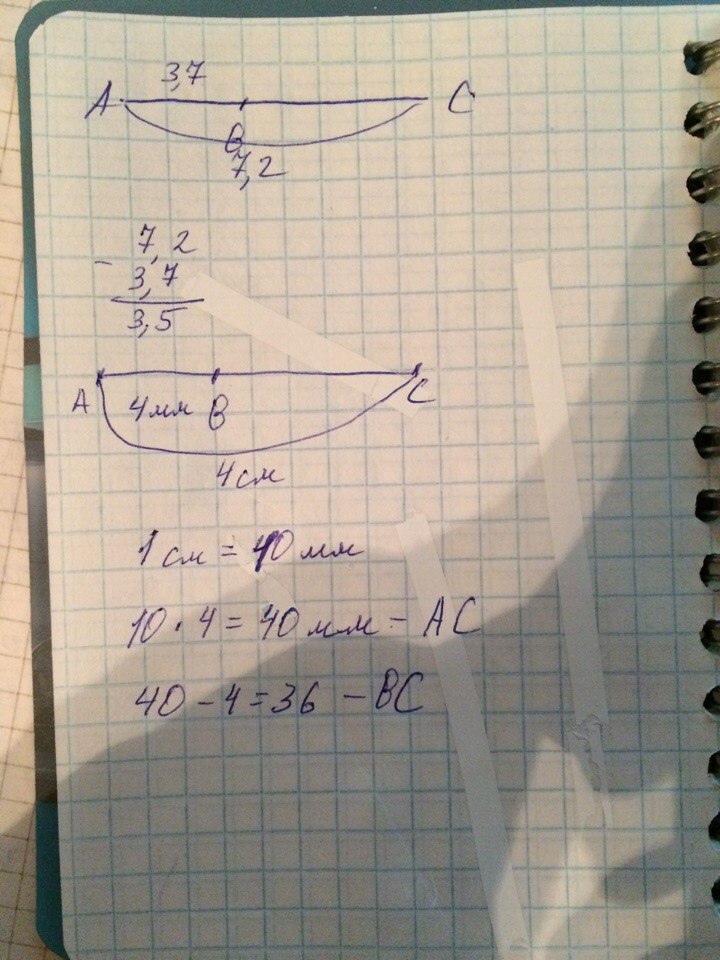 3,7
A C
B
7,2
7,2
- 3,7
3,5
A 4мм B C
4 см
1 см = 10 мм
10 · 4 = 40 мм - AC
40 - 4 = 36 - BC